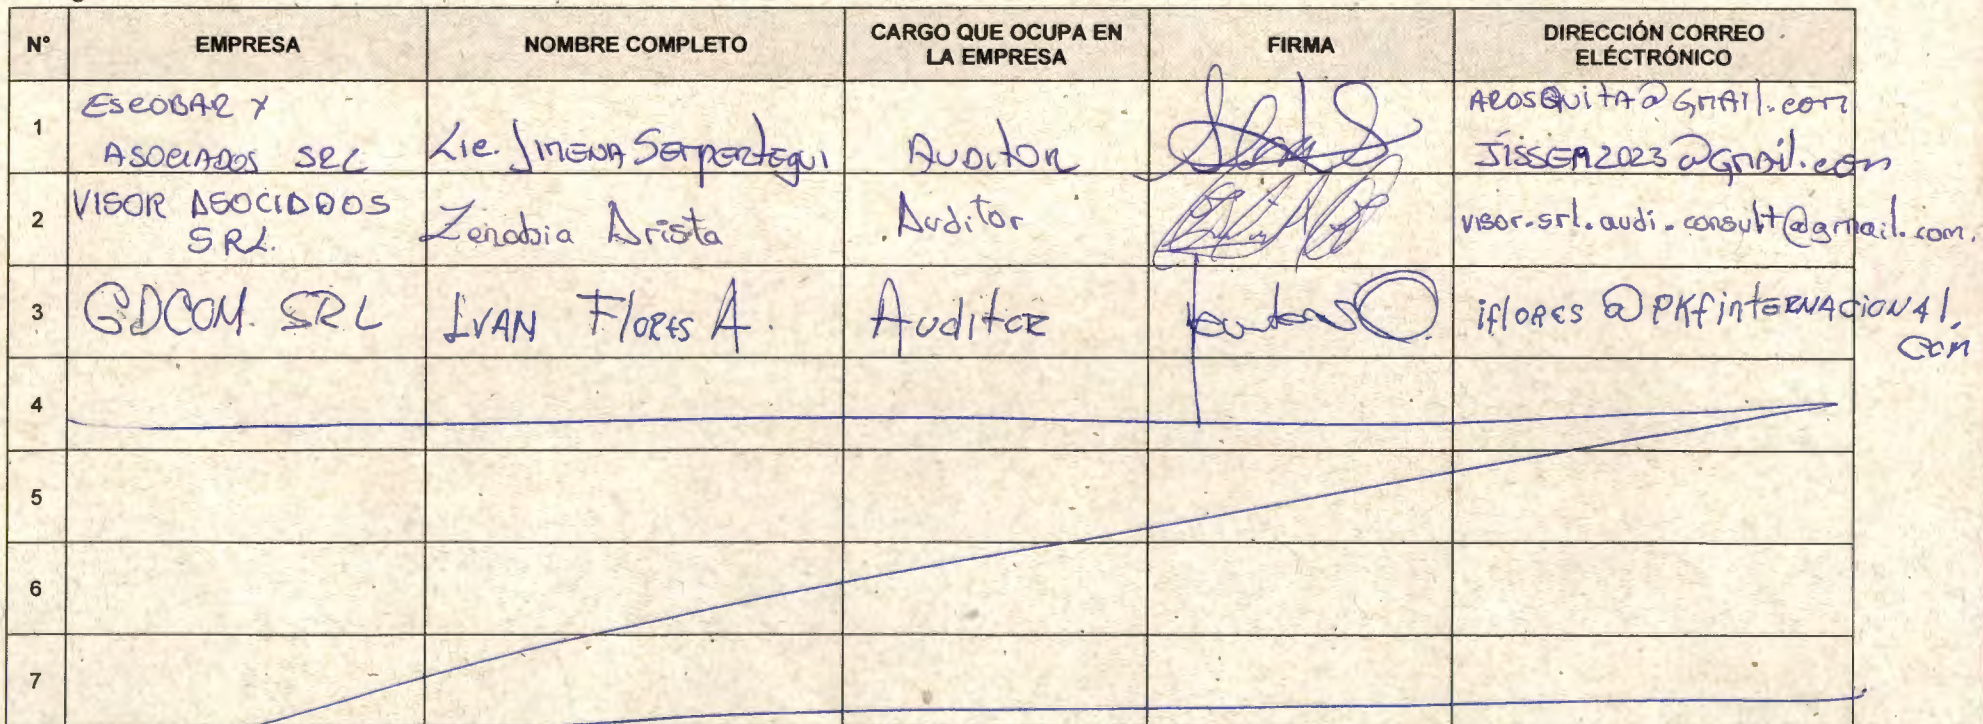 N° EMPRESA NOMBRE COMPLETO CARGO QUE OCUPA EN LA EMPRESA FIRMA DIRECCIÓN CORREO ELÉCTRÓNICO
1 ESCOBAR Y ASOCIADOS SRL Lic. JIMENA SEMPERTEGUI AUDITOR AROSQUITA@GMAIL.COM
JISSEM2023@GMAIL.COM
2 VISOR ASOCIADOS SRL. Zenobia Arista Auditor visor.srl.audi.consult@gmail.com.
3 GDCOM. SRL IVAN FLORES A. Auditor iflores@PKFINTERNACIONAL.COM
4
5
6
7